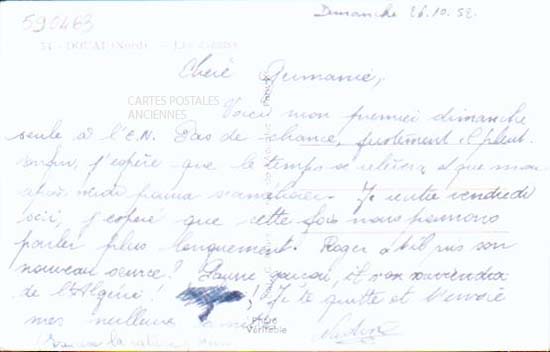 Dimanche 26.10.52.
590463
54 - DOUAI (Nord) - Les
Chère Germanie,
CARTES POSTALES
ANCIENNES
Voici mon premier dimanche
seule à l'E.N. Pas de chance, justement il pleut.
enfin, j'espère que le temps se relèvera et que mon
après midi pourra s'améliorer. Je rentre vendredi
soir, j'espère que cette fois nous pourrons
parler plus longuement. Roger a-t-il pris son
nouveau ? Pauvre garçon, il s'en souviendra
de l'Algérie ! ! Je te quitte et t'envoie
mes meilleures amitiés
Photo
Véritable